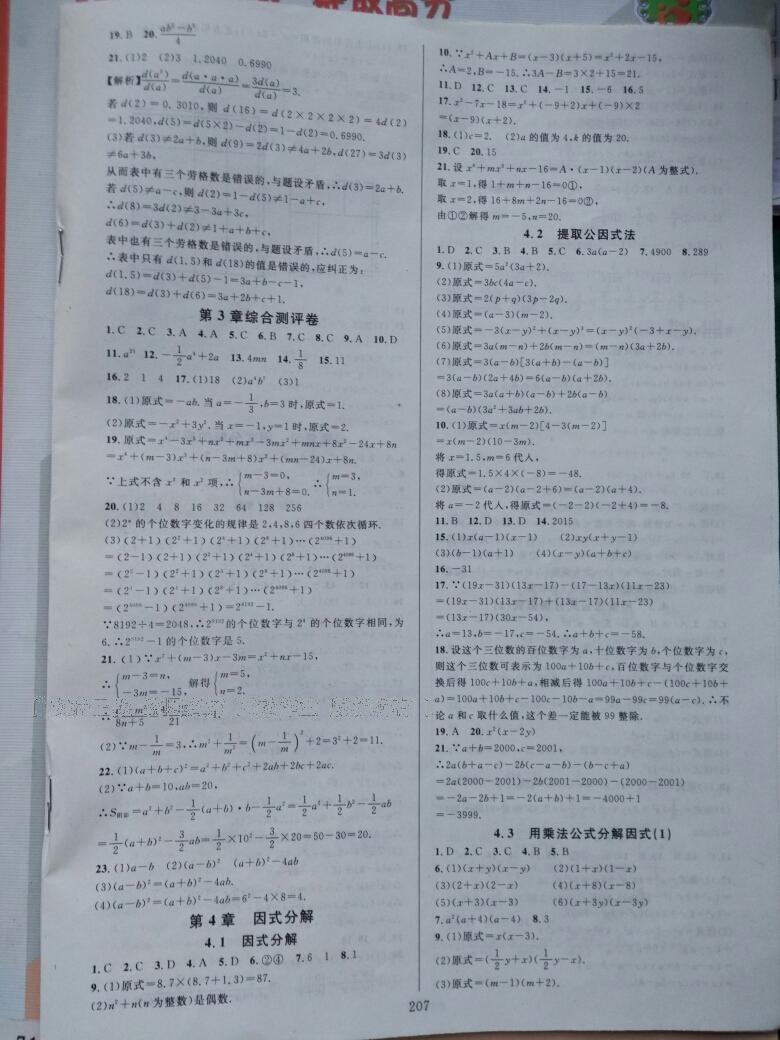 提取高分
19. B 20. (ab²－b³)/4
21. (1)2 (2)3 1.2040 0.6990
【解析】d(a³)/d(a)＝d(a·a·a)/d(a)＝3d(a)/d(a)＝3.
若 d(2)＝0.3010,则 d(16)＝d(2×2×2×2)＝4d(2)
＝1.2040,d(5)＝d(5×2)－d(2)＝1－d(2)＝0.6990.
(3)若 d(3)≠2a＋b,则 d(9)＝2d(3)≠4a＋2b,d(27)＝3d(3)
≠6a＋3b,
从而表中有三个劳格数是错误的,与题设矛盾,∴d(3)＝2a＋b.
若 d(5)≠a－c,则 d(2)＝1－d(5)≠1－a＋c,
∴d(8)＝3d(2)≠3－3a＋3c,
d(6)＝d(3)＋d(2)≠1＋a＋b＋c,
表中也有三个劳格数是错误的,与题设矛盾,∴d(5)＝a－c.
∴表中只有 d(1.5)和 d(18)的值是错误的,应纠正为:
d(1.5)＝d(3)＋d(5)－1＝3a＋b－c－1,
d(18)＝d(3)＋d(6)＝3a＋2b＋c＋1.
第3章综合测评卷
1. C 2. C 3. A 4. A 5. C 6. B 7. C 8. C 9. A 10. D
11. a²¹ 12. －1/2a⁴＋2a 13. 4mn 14. 1/8 15. 11
16. 2 1 4 17. (1)18 (2)a⁴b⁷ (3)1
18. (1)原式＝－ab. 当 a＝－1/3,b＝3 时,原式＝1.
(2)原式＝－x²＋3y². 当 x＝－1,y＝1 时,原式＝2.
19. 原式＝x⁴－3x³＋nx²＋mx³－3mx²＋mnx＋8x²－24x＋8n
＝x⁴＋(m－3)x³＋(n－3m＋8)x²＋(mn－24)x＋8n.
∵上式不含 x³ 和 x² 项,∴{m－3＝0, n－3m＋8＝0. ∴{m＝3, n＝1.
20. (1)2 4 8 16 32 64 128 256
(2)2ⁿ 的个位数字变化的规律是 2,4,8,6 四个数依次循环.
(3)(2＋1)(2²＋1)(2⁴＋1)(2⁸＋1)…(2⁴⁰⁹⁶＋1)
＝(2－1)(2＋1)(2²＋1)(2⁴＋1)(2⁸＋1)…(2⁴⁰⁹⁶＋1)
＝(2²－1)(2²＋1)(2⁴＋1)(2⁸＋1)…(2⁴⁰⁹⁶＋1)
＝(2⁴－1)(2⁴＋1)(2⁸＋1)…(2⁴⁰⁹⁶＋1)
＝(2⁴⁰⁹⁶－1)(2⁴⁰⁹⁶＋1)＝2⁸¹⁹²－1.
∵8192÷4＝2048,∴2⁸¹⁹² 的个位数字与 2⁴ 的个位数字相同,为
6. ∴2⁸¹⁹²－1 的个位数字是 5.
21. (1)∵x²＋(m－3)x－3m＝x²＋nx－15,
∴{m－3＝n, －3m＝－15, 解得{m＝5, n＝2.
8n＋5 21
(2)∵m－1/m＝3,∴m²＋1/m²＝(m－1/m)²＋2＝3²＋2＝11.
22. (1)(a＋b＋c)²＝a²＋b²＋c²＋2ab＋2bc＋2ac.
(2)∵a＋b＝10,ab＝20,
∴S阴影＝a²＋b²－1/2(a＋b)·b－1/2a²＝1/2a²＋1/2b²－1/2ab
＝1/2(a＋b)²－3/2ab＝1/2×10²－3/2×20＝50－30＝20.
23. (1)a－b (2)(a－b)² (a＋b)²－4ab
(3)(a－b)²＝(a＋b)²－4ab.
(4)(a－b)²＝(a＋b)²－4ab＝6²－4×8＝4.
第4章 因式分解
4.1 因式分解
1. C 2. C 3. D 4. A 5. D 6. ②④ 7. 6 1 8. 1
9. (1)原式＝8.7×(8.7＋1.3)＝87.
(2)n²＋n(n 为整数)是偶数.
10. ∵x²＋Ax＋B＝(x－3)(x＋5)＝x²＋2x－15,
∴A＝2,B＝－15. ∴3A－B＝3×2＋15＝21.
11. D 12. C 13. C 14. －1 15. －6 16. 5
17. x²－7x－18＝x²＋(－9＋2)x＋(－9)×2
＝(x－9)(x＋2).
18. (1)c＝2. (2)a 的值为 4,k 的值为 20.
19. C 20. 15
21. 设 x⁴＋mx³＋nx－16＝A·(x－1)(x－2)(A 为整式).
取 x＝1,得 1＋m＋n－16＝0①,
取 x＝2,得 16＋8m＋2n－16＝0②,
由①②解得 m＝－5,n＝20.
4.2 提取公因式法
1. D 2. C 3. B 4. B 5. C 6. 3a(a－2) 7. 4900 8. 289
9. (1)原式＝5a²(3a＋2).
(2)原式＝3bc(4a－c).
(3)原式＝2(p＋q)(3p－2q).
(4)原式＝(a－3)(m－2).
(5)原式＝－3(x－y)²＋(x－y)³＝(x－y)²(－3＋x－y).
(6)原式＝3a(m－n)＋2b(m－n)＝(m－n)(3a＋2b).
(7)原式＝3(a－b)[3(a＋b)－(a－b)]
＝3(a－b)(2a＋4b)＝6(a－b)(a＋2b).
(8)原式＝3a(a＋b)(a－b)＋2b(a－b)
＝(a－b)(3a²＋3ab＋2b).
10. (1)原式＝x(m－2)[4－3(m－2)]
＝x(m－2)(10－3m).
将 x＝1.5,m＝6 代人,
得原式＝1.5×4×(－8)＝－48.
(2)原式＝(a－2)(a－2＋6)＝(a－2)(a＋4).
将 a＝－2 代人,得原式＝(－2－2)(－2＋4)＝－8.
11. B 12. D 13. D 14. 2015
15. (1)x(a－1)(x－1) (2)xy(x＋y－1)
(3)(b－1)(a＋1) (4)(x－y)(a＋b＋c)
16. －31
17. ∵(19x－31)(13x－17)－(17－13x)(11x－23)
＝(19x－31)(13x－17)＋(13x－17)(11x－23)
＝(13x－17)(30x－54),
∴a＝13,b＝－17,c＝－54. ∴a＋b＋c＝－58.
18. 设这个三位数的百位数字为 a,十位数字为 b,个位数字为 c,
则这个三位数可表示为 100a＋10b＋c,百位数字与个位数字交
换后得 100c＋10b＋a,相减后得 100a＋10b＋c－(100c＋10b＋
a)＝100a＋10b＋c－100c－10b－a＝99a－99c＝99(a－c). ∴不
论 a 和 c 取什么值,这个差一定能被 99 整除.
19. A 20. x²(x－2y)
21. ∵a＋b＝2000,c＝2001,
∴2a(b＋a－c)－2b(c－a－b)－(b－c＋a)
＝2a(2000－2001)－2b(2001－2000)－(2000－2001)
＝－2a－2b＋1＝－2(a＋b)＋1＝－4000＋1
＝－3999.
4.3 用乘法公式分解因式(1)
1. D 2. C 3. C 4. B 5. B
6. (1)(x＋y)(x－y) (2)(1＋x)(1－x)
(3)(2＋x)(2－x) (4)(x＋8)(x－8)
(5)(x＋3)(x－3) (6)(x＋3y)(x－3y)
7. a²(a＋4)(a－4) 8. 3
9. (1)原式＝x(x－3).
(2)原式＝(1/2y＋x)(1/2y－x).
(3)原式＝(m－1)(m＋2).
207